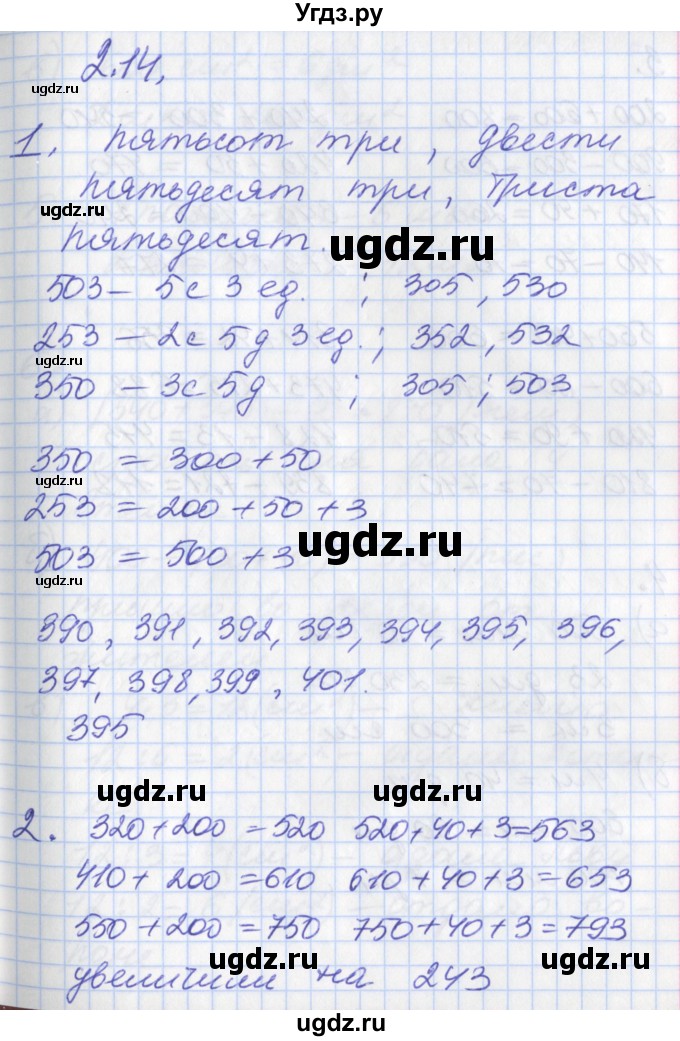 Угдз.ру
2.14.
ugdz.ru
1. пятьсот три, двести
пятьдесят три, триста
ugdz.ru
пятьдесят.
ugdz.ru
503 – 5с 3 ед. ; 305, 530
253 – 2с 5д 3 ед.; 352, 532
ugdz.ru
350 – 3с 5д ; 305; 503
350 = 300 + 50
253 = 200 + 50 + 3
ugdz.ru
503 = 500 + 3
ugdz.ru
390, 391, 392, 393, 394, 395, 396,
397, 398, 399, 401.
395
ugdz.ru ugdz.ru
2. 320 + 200 = 520 520 + 40 + 3 = 563
410 + 200 = 610 610 + 40 + 3 = 653
550 + 200 = 750 750 + 40 + 3 = 793
ugdz.ru ugdz.ru
увеличили на 243
ugdz.ru